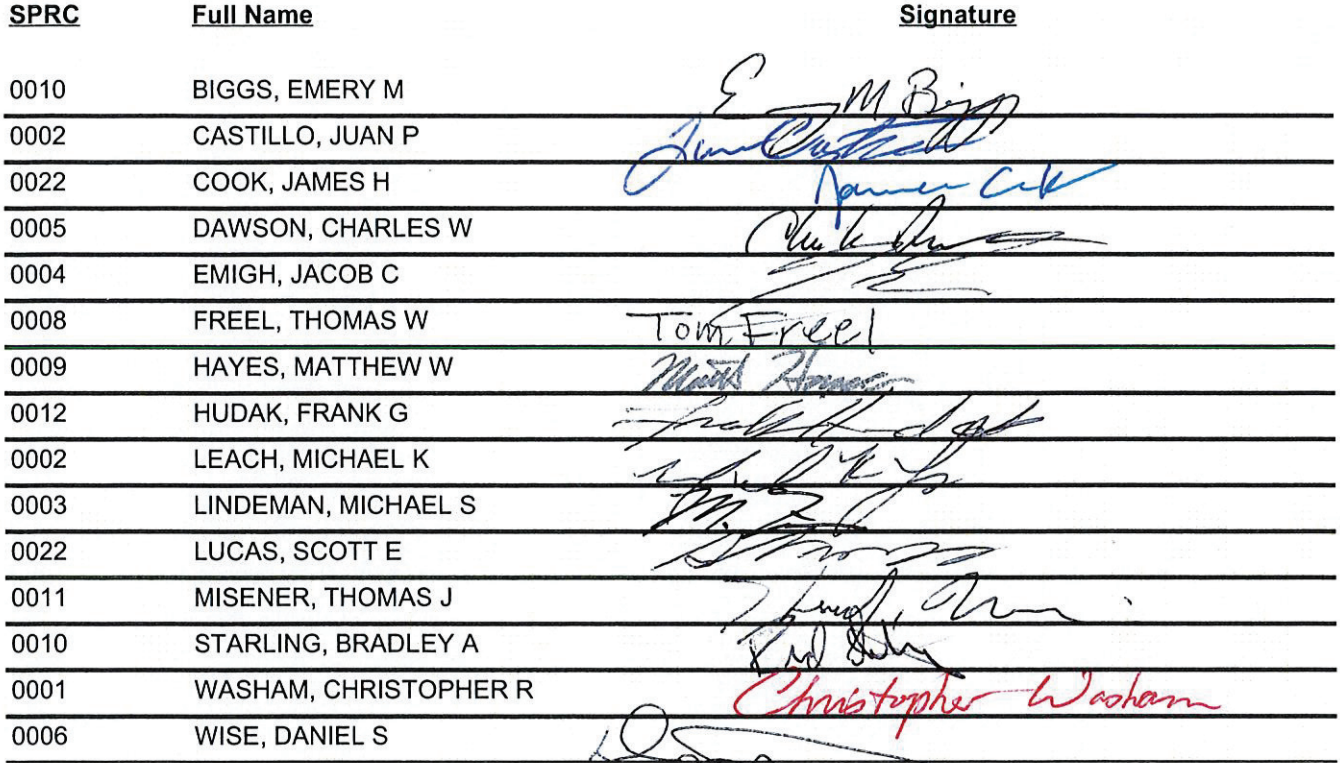 SPRC Full Name Signature
0010 BIGGS, EMERY M E M Biggs
0002 CASTILLO, JUAN P Juan Castillo
0022 COOK, JAMES H James Cook
0005 DAWSON, CHARLES W Chuck
0004 EMIGH, JACOB C
0008 FREEL, THOMAS W Tom Freel
0009 HAYES, MATTHEW W Matt Hayes
0012 HUDAK, FRANK G Frank Hudak
0002 LEACH, MICHAEL K
0003 LINDEMAN, MICHAEL S M.
0022 LUCAS, SCOTT E
0011 MISENER, THOMAS J
0010 STARLING, BRADLEY A
0001 WASHAM, CHRISTOPHER R Christopher Washam
0006 WISE, DANIEL S